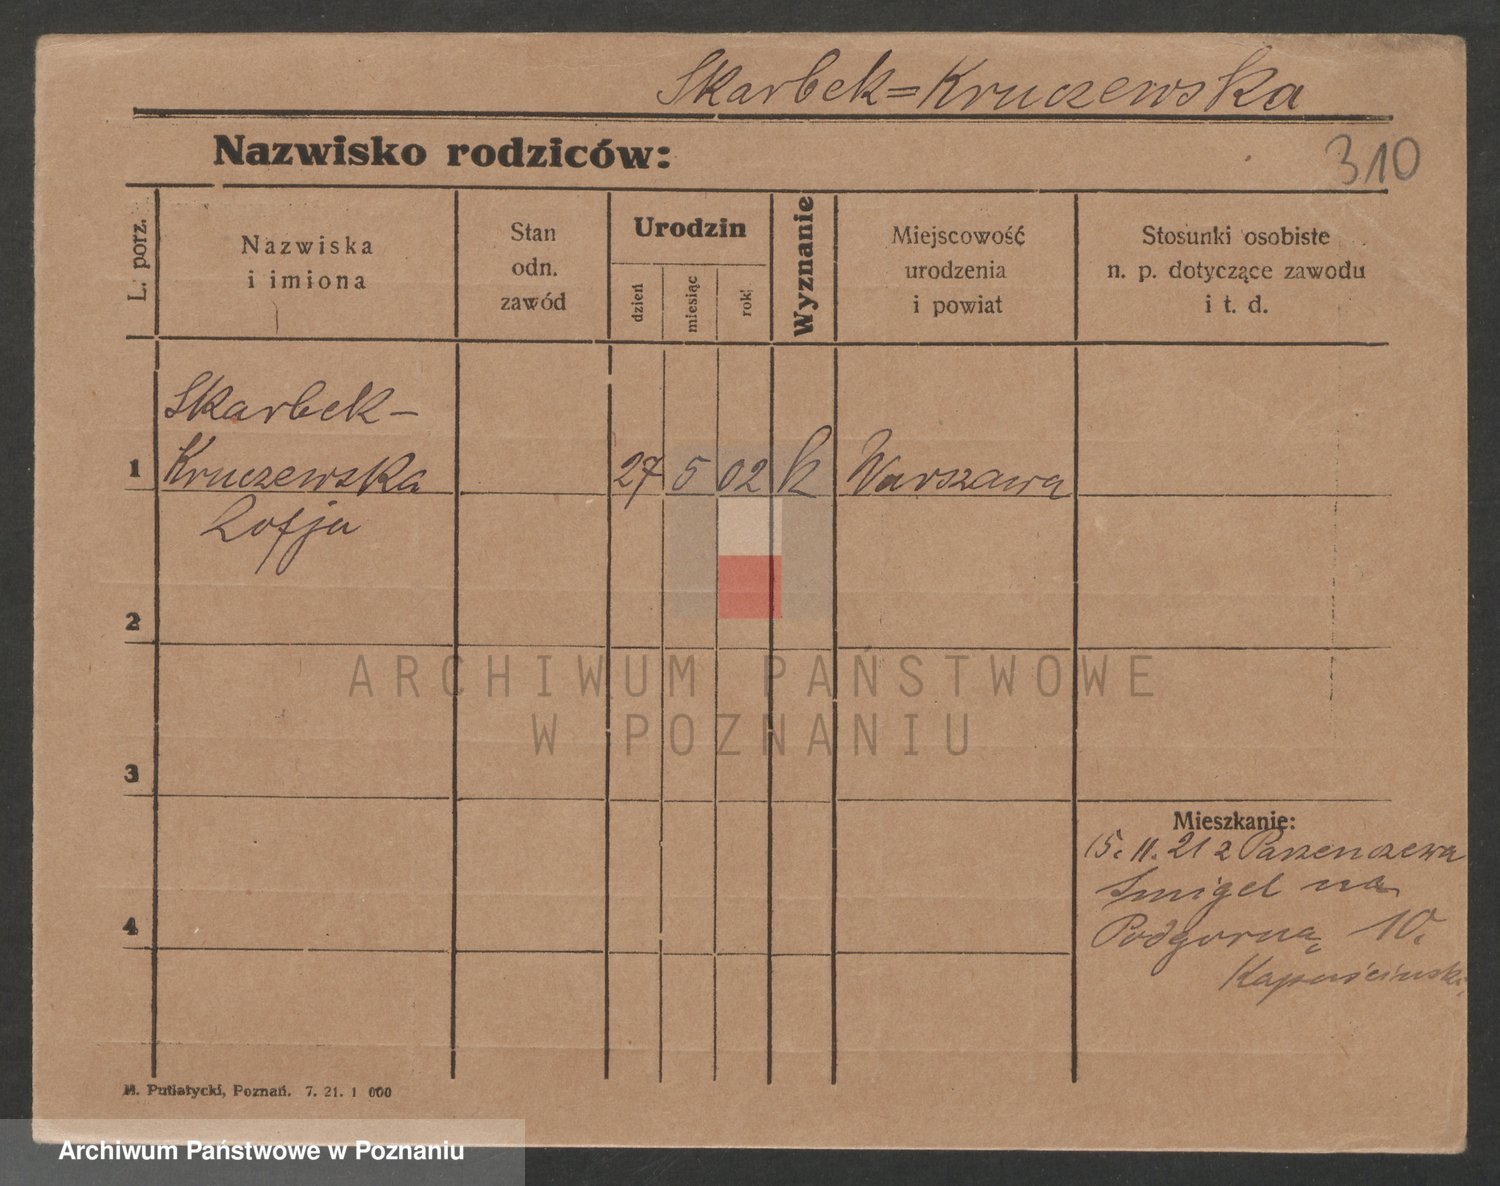 Skarbek=Kruczewska
Nazwisko rodziców:
310
L. porz.
Nazwiska
i imiona
Stan
odn.
zawód
Urodzin
dzień
miesiąc
rok
Wyznanie
Miejscowość
urodzenia
i powiat
Stosunki osobiste
n. p. dotyczące zawodu
i t. d.
Skarbek-
1 Kruczewska 27 5 02 k Warszawa
Zofja
2
ARCHIWUM PAŃSTWOWE
W POZNANIU
3
Mieszkanie:
15. 11. 21 z Parzenczewa
Śmigel na
4
Podgorną 10.
Kapuściński
M. Putiatycki, Poznań. 7. 21. 1 000
Archiwum Państwowe w Poznaniu